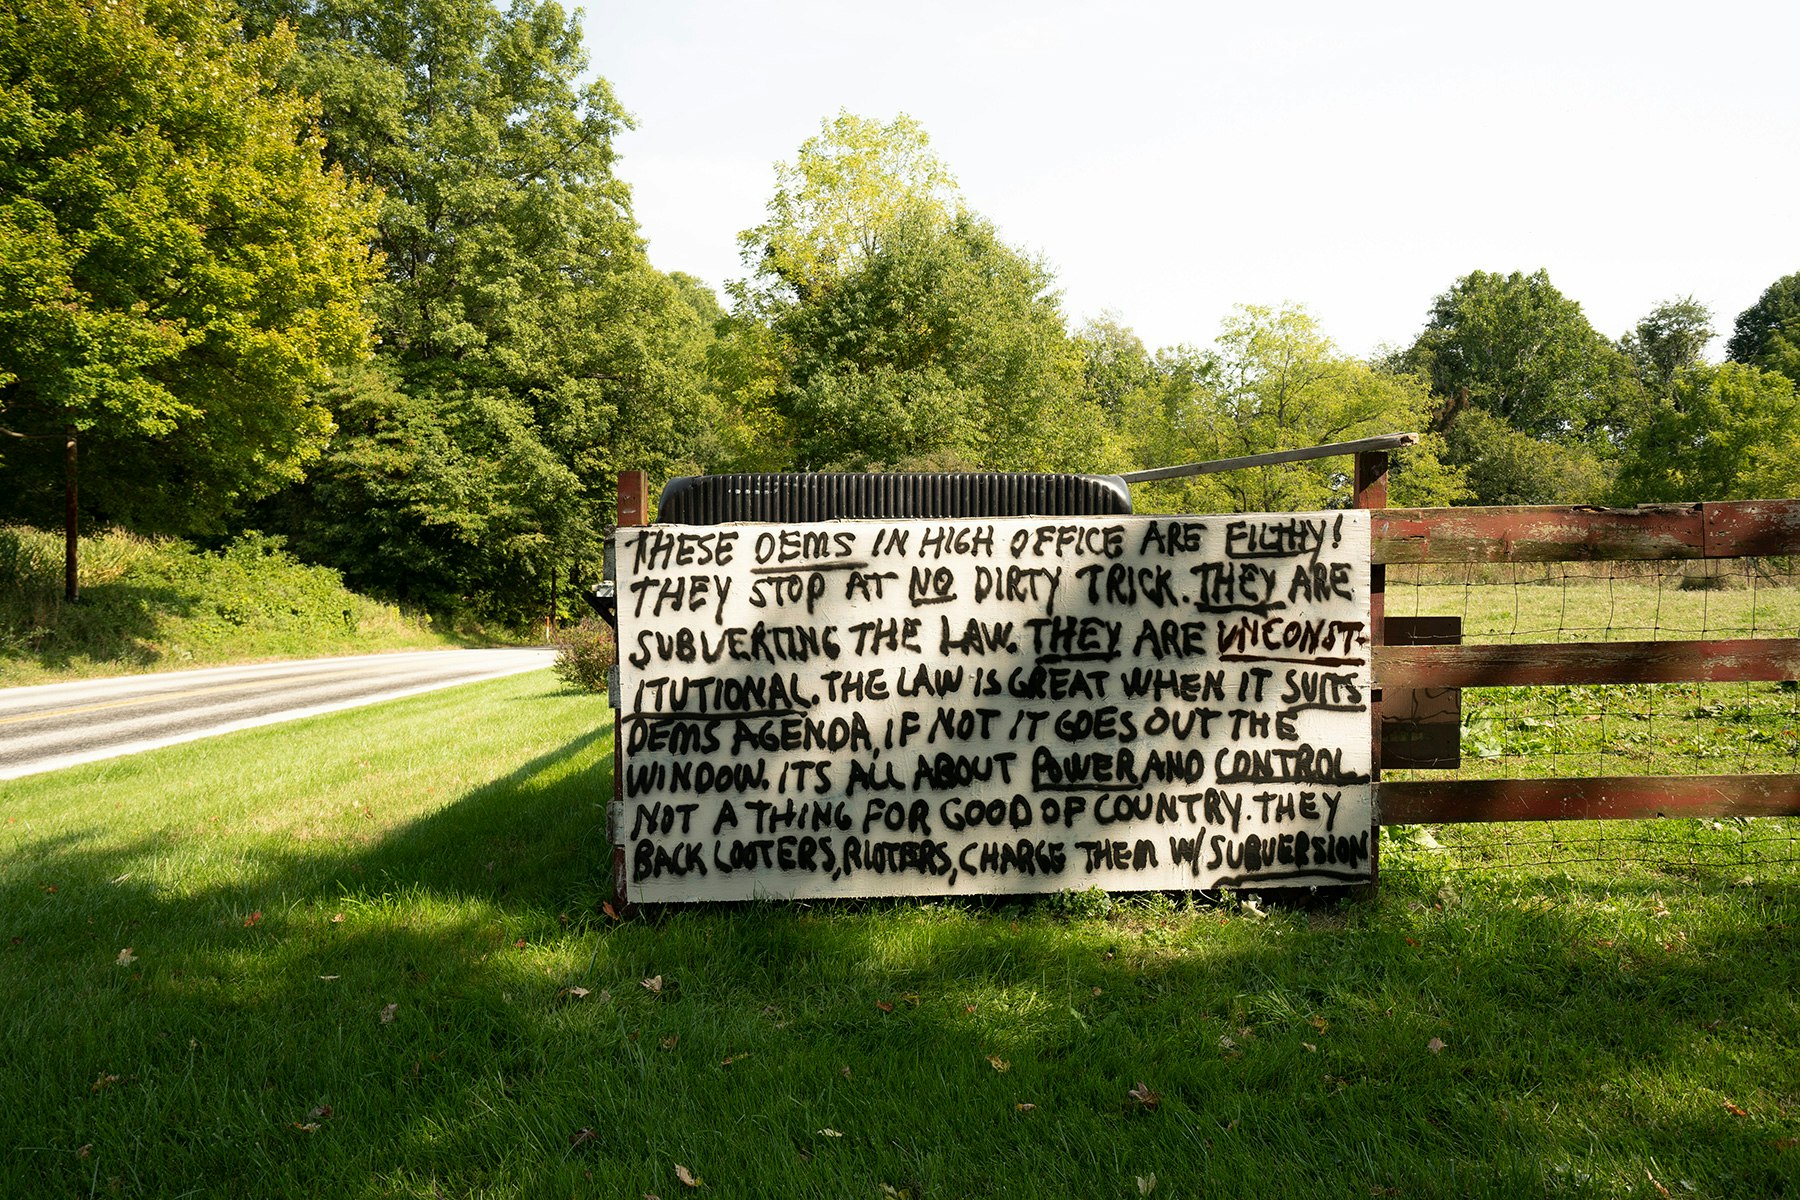 THESE DEMS IN HIGH OFFICE ARE FILTHY!
THEY STOP AT NO DIRTY TRICK. THEY ARE
SUBVERTING THE LAW. THEY ARE UNCONST-
ITUTIONAL. THE LAW IS GREAT WHEN IT SUITS
DEMS AGENDA, IF NOT IT GOES OUT THE
WINDOW. ITS ALL ABOUT POWER AND CONTROL
NOT A THING FOR GOOD OF COUNTRY. THEY
BACK LOOTERS, RIOTERS, CHARGE THEM W/ SUBVERSION